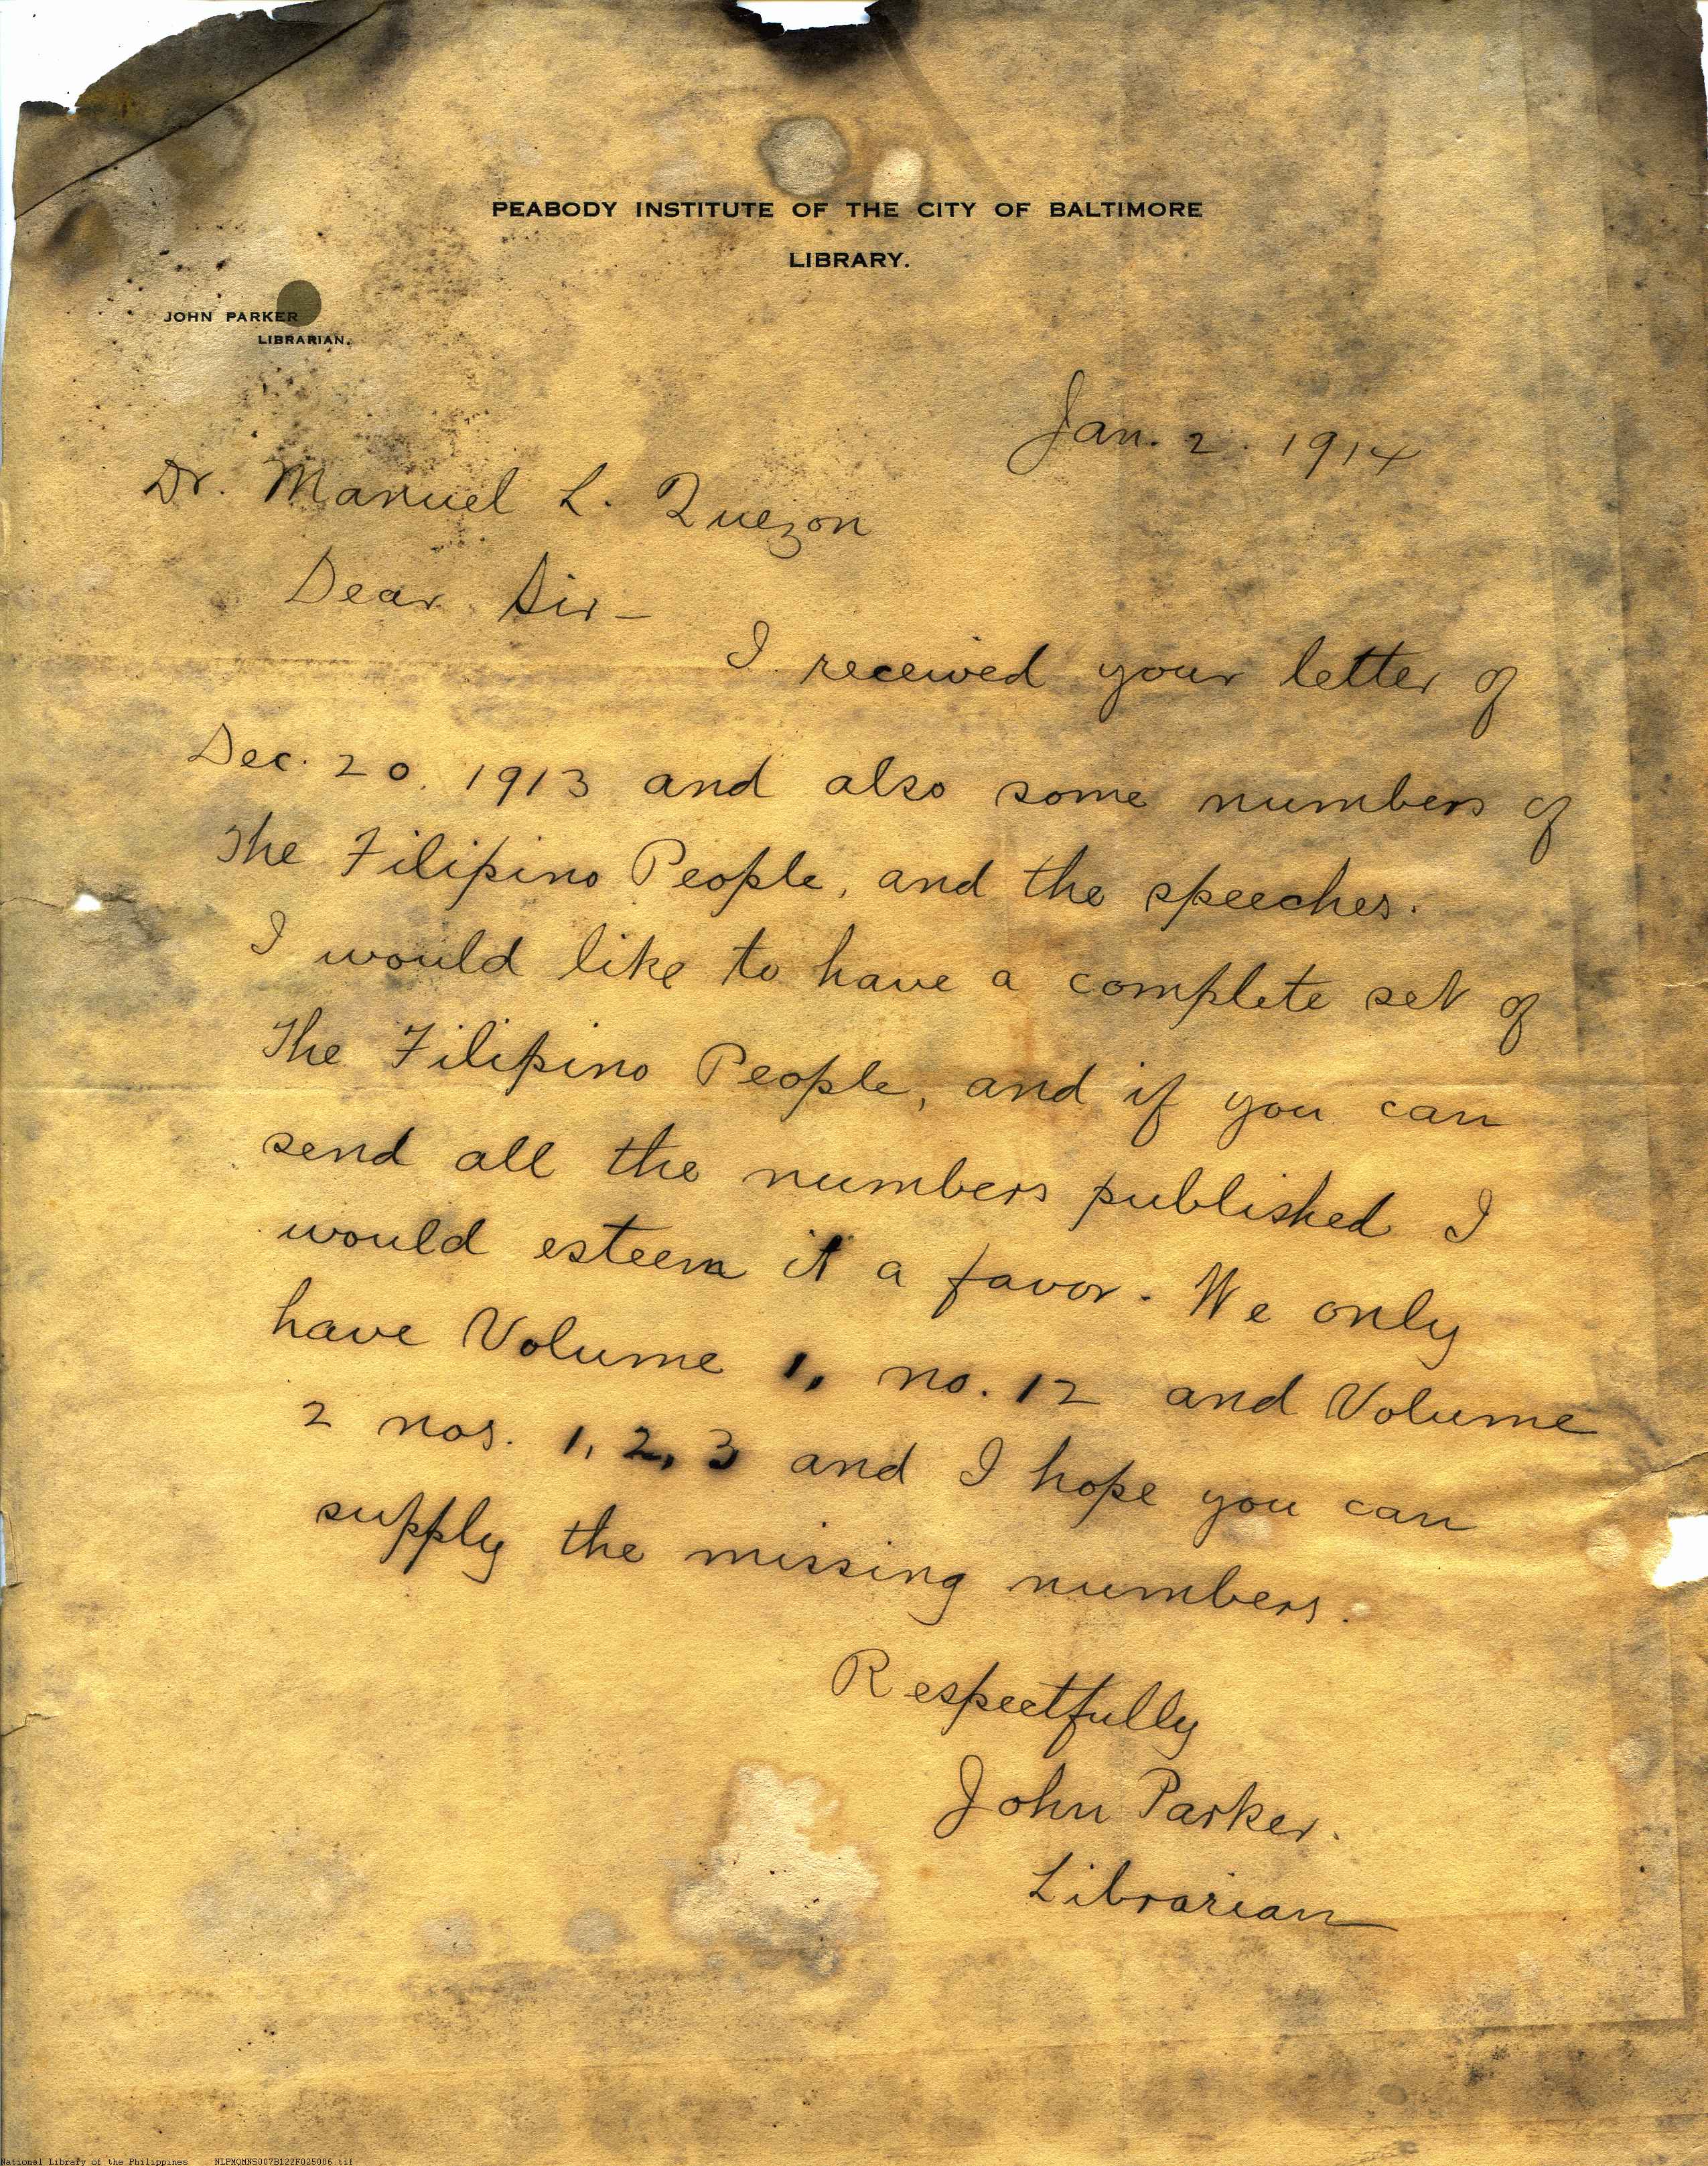 PEABODY INSTITUTE OF THE CITY OF BALTIMORE
LIBRARY.
JOHN PARKER
LIBRARIAN.
Jan. 2. 1914
Dr. Manuel L. Quezon
Dear Sir —
I received your letter of
Dec. 20. 1913 and also some numbers of
The Filipino People, and the speeches.
I would like to have a complete set of
The Filipino People, and if you can
send all the numbers published I
would esteem it a favor. We only
have Volume 1, no. 12 and Volume
2 nos. 1, 2, 3 and I hope you can
supply the missing numbers.
Respectfully
John Parker.
Librarian
National Library of the Philippines NLPMQMNS007B122F025006.tif